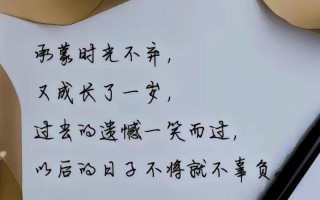 承蒙时光不弃，
又成长了一岁，
过去的遗憾一笑而过，
以后的日子不将就不辜负